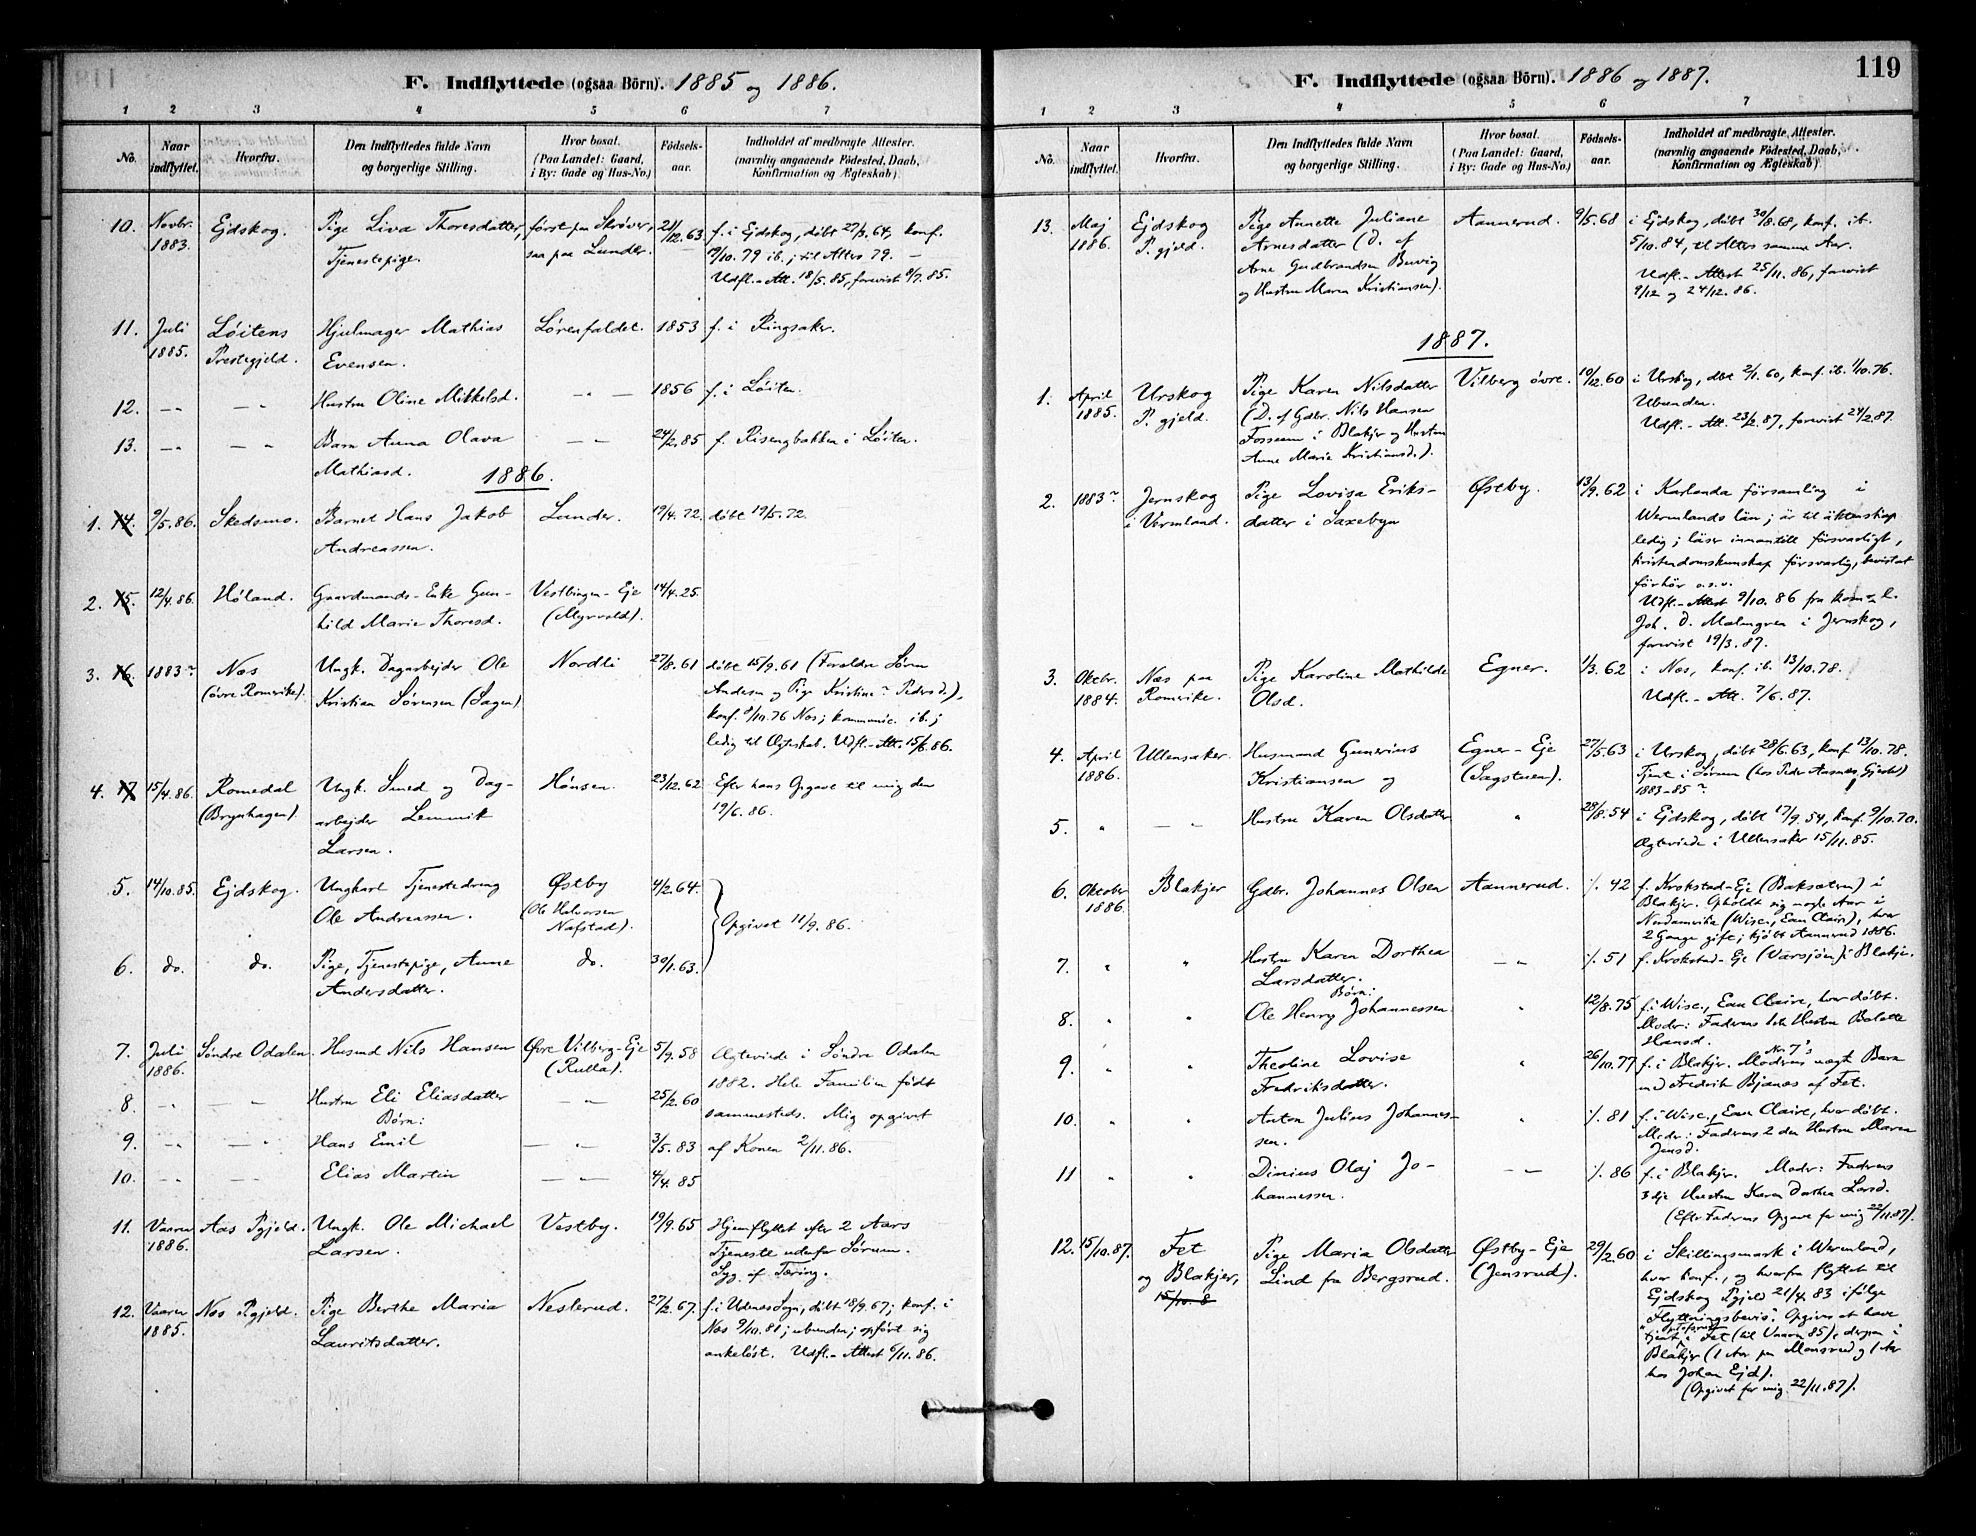 F. Indflyttede (ogsaa Börn). 1885 og 1886.
1 2 3 4 5 6 7
No. Naar indflyttet. Hvorfra. Den Indflyttedes fulde Navn og borgerlige Stilling. Hvor bosat. (Paa Landet: Gaard, i By: Gade og Hus-No.) Födsels-aar. Indholdet af medbragte Attester. (navnlig angaaende Födested, Daab, Konfirmation og Ægteskab)
10. Novbr. Ejdskog. Pige Liva Thoresdatter, först paa Skrøver, 21/12.63. f. i Ejdskog, döbt 27/3.64, konf.
1883. Tjenestepige. saa paa Lunder. /10.79 ib.; til Alters 79. —
Udfl.-Att. 18/5.85, forevist /7.85.
11. Juli Löitens Hjulmager Mathias Lörenfaldet. 1853 f. i Ringsaker.
1885. Prestegjeld. Evensen.
12. — „ — „ Hustru Oline Mikkelsd. — „ — 1856 f. i Löiten.
13. — „ — „ Barn Anna Olava — „ 24/2.85 f. Risengbakken i Löiten.
Mathiasd.
1886.
1. 14. 9/5.86. Skedsmo. Barnet Hans Jakob Lunder. 19/4.72. döbt 19/5.72.
Andreassen.
2. 15. 12/4.86. Höland. Gaardmands-Enke Gun- Vestbingen-Eje 14/4.25.
hild Marie Thoresd. (Myrvold).
3. 16. 1883 Nes Ungk. Dagarbejder Ole Nordli 27/8.61 döbt 15/9.61 (Foreldre Sören
(övre Romerike). Kristian Sörensen (Sagen) Andersen og Pige Kristine Pedersd.),
konf. /10.76 Nes; kommunic. ib.;
ledig til Ægteskab. Udfl.-Att. 15/6.86.
4. 17. 15/4.86. Romedal Ungk. Smed og Dag- Hönsen. 23/12.62 Efter hans Opgave til mig den
(Brynhagen). arbejder Lemmik 19/6.86.
Larsen.
5. 14/10.85. Ejdskog. Ungkarl Tjenestedreng Østby 4/2.64. Opgivet 11/9.86.
Ole Andreassen. (Ole Halvorsen
Nafstad).
6. do. do. Pige, Tjenestepige, Anne do. 30/1.63.
Andersdatter.
7. Juli Söndre Odalen. Husmd Nils Hansen Övre Vilberg-Eje 5/9.58 Ægteviede i Söndre Odalen
1886. (Rulla). 1882. Hele Familien født
8. — „ — „ Hustru Eli Eliasdatter — „ 25/2.60 sammesteds. Mig opgivet
Börn:
9. — „ — „ Hans Emil — „ 3/5.83 af Konen 2/11.86.
10. — „ — „ Elias Martin — „ 4/4.85
11. Vaaren Aas Pgjeld. Ungk. Ole Michael Vestby. 19/9.65 Hjemflyttet efter 2 Aars
1886. Larsen. Tjeneste udenfor Sörum.
Syg af Tæring.
12. Vaaren Nes Pgjeld. Pige Berthe Maria Neslerud. 27/2.67. f. i Udenes Sogn, döbt 18/9.67; konf. i
1885. Lauritsdatter. Nes 9/10.81; ubunden; opfört sig
ankelöst. Udfl.-Attest 6/11.86.
119
F. Indflyttede (ogsaa Börn). 1886 og 1887.
1 2 3 4 5 6 7
No. Naar indflyttet. Hvorfra. Den Indflyttedes fulde Navn og borgerlige Stilling. Hvor bosat. (Paa Landet: Gaard, i By: Gade og Hus-No.) Födsels-aar. Indholdet af medbragte Attester. (navnlig angaaende Födested, Daab, Konfirmation og Ægteskab)
13. Maj Ejdskog Pige Annette Juliane Aannerud. 9/5.68 i Ejdskog, döbt 30/8.68, konf. ib.
1886. P. gjeld. Arnesdatter (D. af 5/10.84, til Alters samme Aar.
Arne Gudbrandsen Buvig Udfl.-Attest 25/11.86, forevist
og Hustru Maren Kristiansen). 9/12 og 24/12.86.
1887.
1. April Urskog Pige Karen Nilsdatter Vilberg övre. 10/12.60 i Urskog, döbt 2/1.60, konf. ib. 1/10.76.
1885. P. gjeld. (D. af Gdbr. Nils Hansen Ubunden.
Fosseum i Blakjer og Hustru Udfl.-Att. 23/2.87, forevist 24/2.87.
Anne Marie Kristiansd.).
2. 1883 Jernskog Pige Lovisa Eriks- Østby. 13/9.62 i Karlanda församling i
i Vermland. datter i Saxebyn Wermlands län; är til äktenskap
ledig; läser innantill försvarligt,
kristendomskunskap försvarlig, bevistat
förhör o.s.v.
Udfl.-Attest 9/10.86 fra kom. l.
Joh. D. Malmgren i Jernskog,
forevist 19/3.87.
3. Oktbr. Nes paa Pige Karoline Mathilde Egner. 1/3.62 i Nes, konf. ib. 13/10.78.
1884. Romerike. Olsd. Udfl.-Att. 7/6.87.
4. April Ullensaker. Husmand Gunerius Egner-Eje 27/5.63 i Urskog, döbt 28/6.63, konf 13/10.78.
1886. Kristiansen og (Sagstuen). Tjent i Sörum (hos Peder Aasnes, Gjestad)
1883-85
5. „ — „ Hustru Karen Olsdatter „ 28/8.54 i Ejdskog, döbt 17/9.54, konf. 9/10.70.
Ægteviede i Ullensaker 15/11.85.
6. Oktober Blakjer Gdbr. Johannes Olsen Aannerud. /.42 f. Krokstad-Eje (Baksæteren) i
1886. Blakjer. Opholdt sig nogle Aar i
Nordamerika (Wisc., Eau Claire), hvor
2 Gange gift; kjöbt Aannerud 1886.
7. „ „ Hustru Karen Dorthea — „ /.51 f. Krokstad-Eje (Varsjöen) i Blakjer.
Larsdatter.
Börn:
8. „ „ Ole Henry Johannessen „ 12/8.75 f. i Wisc., Eau Claire, hvor döbt.
Moder: Faderens 1ste Hustru Bolette
Hansd.
9. „ „ Theoline Lovise „ 26/10.77 f. i Blakjer. Moderens No 7's uægt Barn
Fredriksdatter. med Fredrik Bjanes af Fet.
10. „ „ Anton Julius Johannes- „ /.81 f. i Wisc., Eau Claire, hvor döbt.
sen. Moder: Faderens 2den Hustru Maren
Jensd.
11 „ „ Dinius Olaj Jo- — „ /.86 f. i Blakjer. Moder: Faderens
hannessen. 3dje Hustru Karen Dorthea Larsd.
(Efter Faderens Opgave for mig 22/11.87).
12. 15/10.87. Fet Pige Maria Olsdatter Østby-Eje 29/2.60 i Skillingsmark i Wermland,
og Blakjer, Lind fra Bergsrud. (Jensrud). hvor konf., og hvorfra flyttet til
15/10.8 Ejdskog Pgjeld 21/4.83 ifölge
"Flyttningsbevis". Opgives at have
tjent i Fet (til Vaaren 85), derpaa i
Blakjer (1 Aar paa Monsrud og 1 Aar
hos Johan Ejd).
(Opgivet for mig 22/11.87).